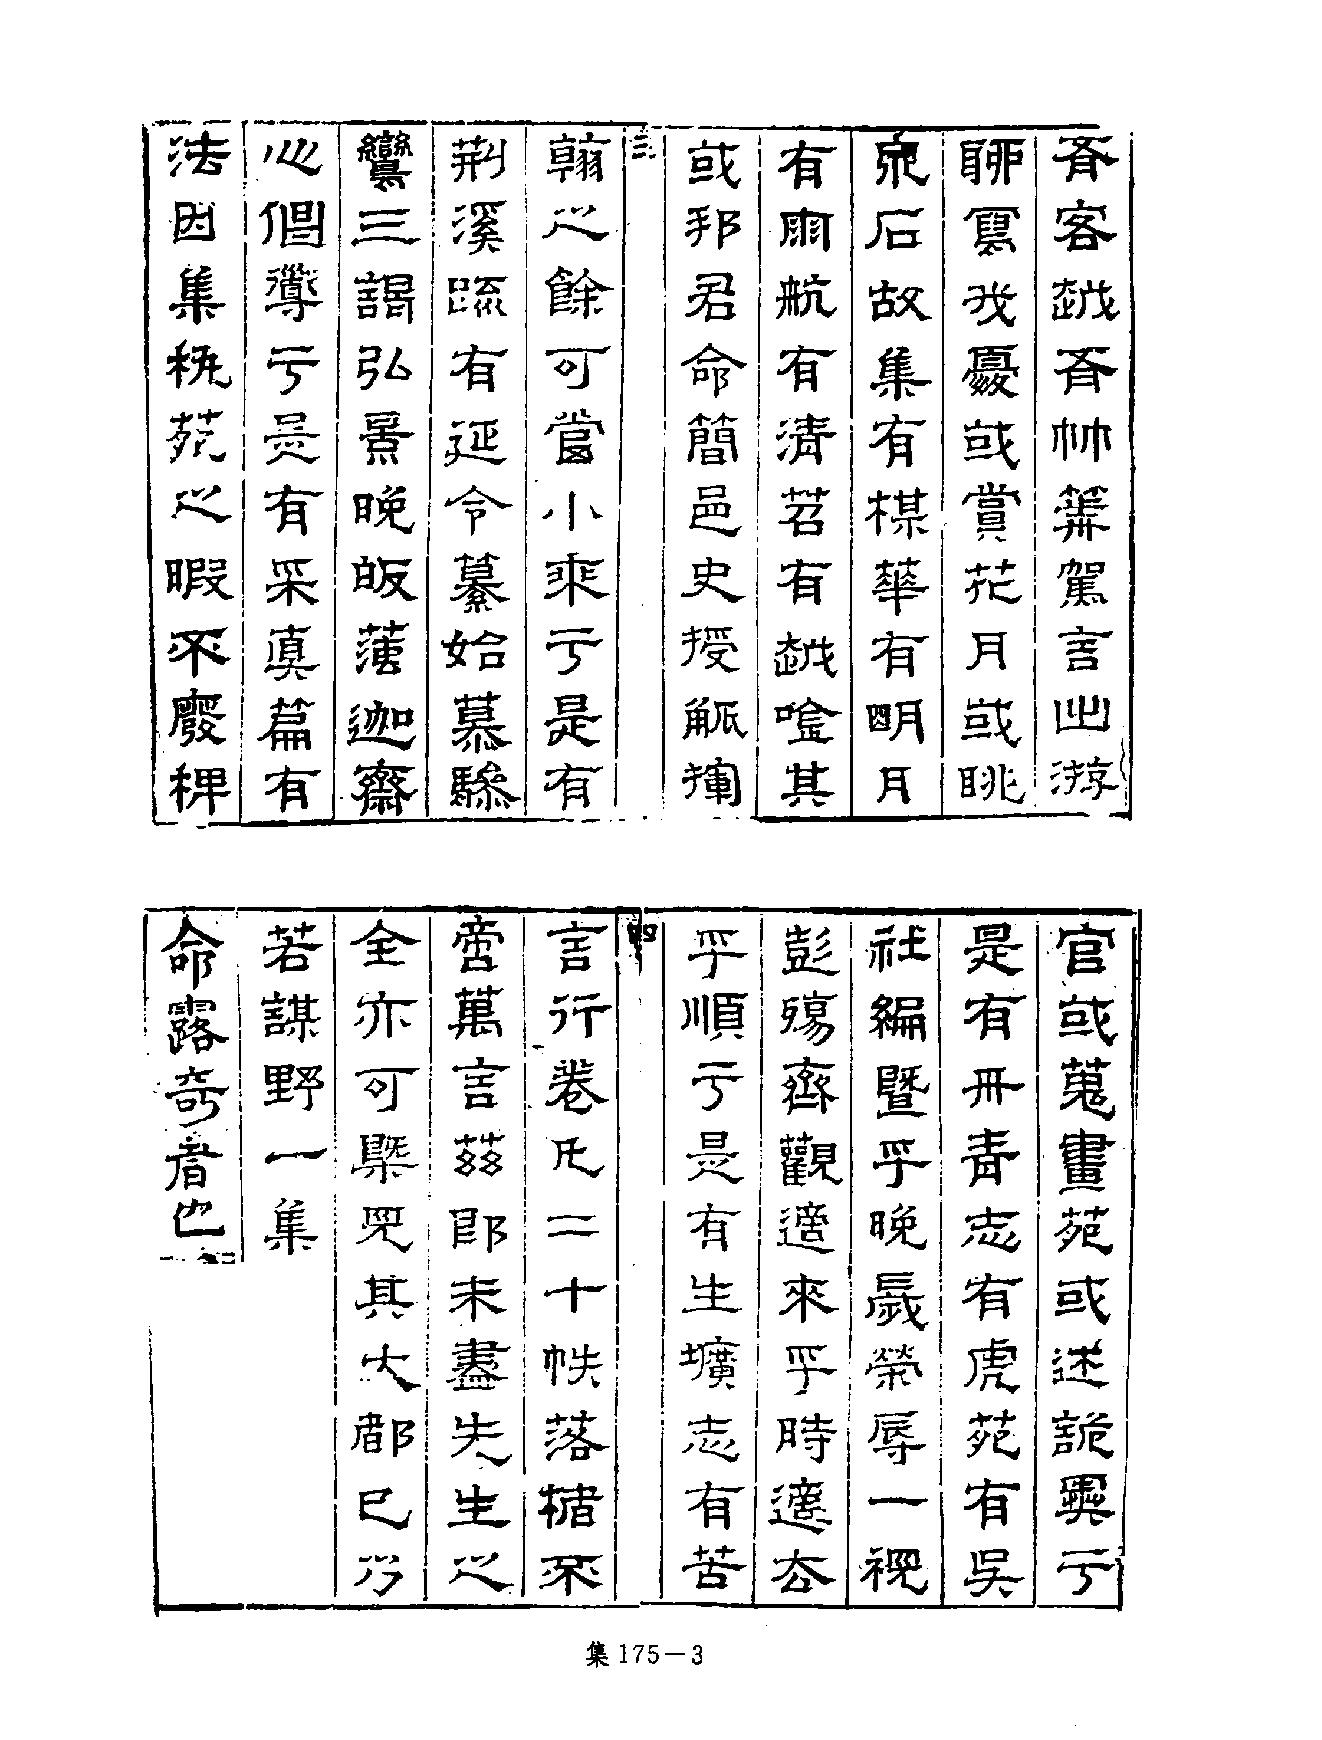 有客越有竹箭駕言出游
聊寫我憂或賞花月或眺
泉石故集有楳華有朙月
有雨航有清苕有越唫其
或邦君命簡邑史授觚揮
三
翰之餘可當小乘于是有
荊溪疏有延令纂始慕驂
鸞三謁弘景晚皈薄迦齋
心倡導于是有采真篇有
法因集執苑之暇不廢稗
官或蒐畫苑或述詭異于
是有丹青志有虎苑有吳
社編暨乎晚歲榮辱一視
彭殤齊觀適來乎時適去
乎順于是有生壙志有苦
四
言行卷凡二十帙落楮不
啻萬言茲即未盡先生之
全亦可槩見其大都已乃
若謀野一集
命露奇者也
集175－3